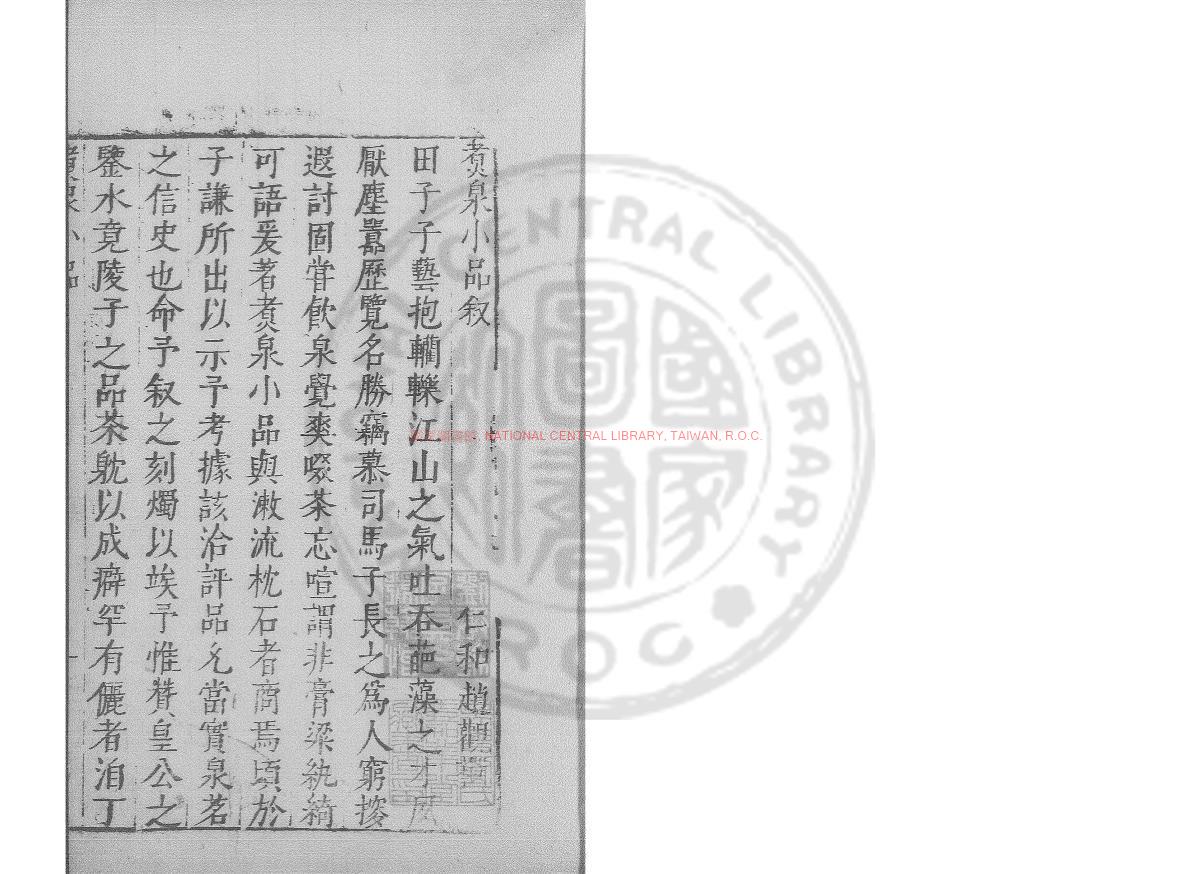 煑泉小品叙
仁和趙觀撰
田子子藝抱轥轢江山之氣吐吞葩藻之才夙
厭塵囂歷覽名勝竊慕司馬子長之爲人窮搜
遐討固甞飲泉覺爽啜茶忘喧謂非膏粱紈綺
可語爰著煑泉小品與漱流枕石者商焉頃於
子謙所出以示予考據該洽評品允當實泉茗
之信史也命予叙之刻燭以竢予惟贊皇公之
鑒水竟陵子之品茶躭以成癖罕有儷者洎丁
煑泉小品
NATIONAL CENTRAL LIBRARY, TAIWAN, R.O.C.
CENTRAL LIBRARY
ROC
國家圖書館